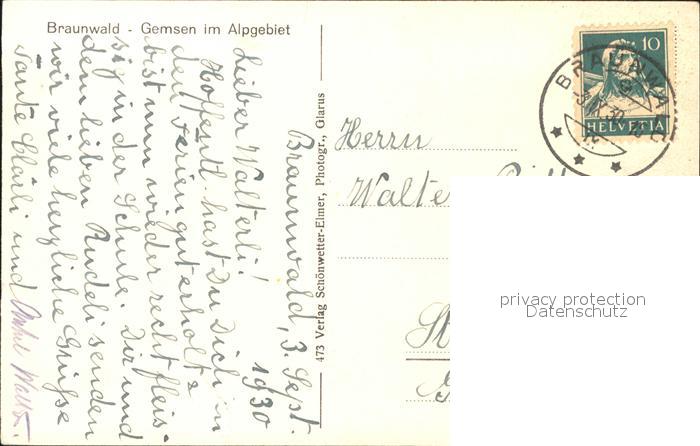 Braunwald - Gemsen im Alpgebiet
Braunwald, 3. Sept.
1930
Lieber Walterli!
Hoffentl. hast Du Dich in
den Ferien gut erholt &
bist nun wieder recht fleis-
sig in der Schule. Dir und
dem lieben Ruedeli senden
wir viele herzliche Grüsse
Tante Clärli und Onkel Walter.
473 Verlag Schönwetter-Elmer, Photogr., Glarus
Herrn
Walte
St
10
HELVETIA
BRAUNWA
privacy protection
Datenschutz